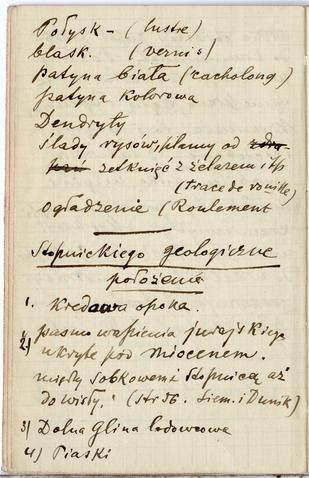 Połysk - (lustre)
blask. (vernis)
patyna biała (cacholong)
patyna kolorowa
Dendryty
ślady rysów, plamy od
zetknięć z żelazem itp
(trace de rouille)
ogładzenie (Roulement
Stopnickiego geologiczne
położenie
1. Kredowa opoka.
2) pasmo wapienia jurajskiego
ukryte pod miocenem.
między Sobkowem i Stopnicą aż
do Wisły. (str 56. Siem. i Dunik)
3) Dolna Glina lodowcowa
4) Piaski